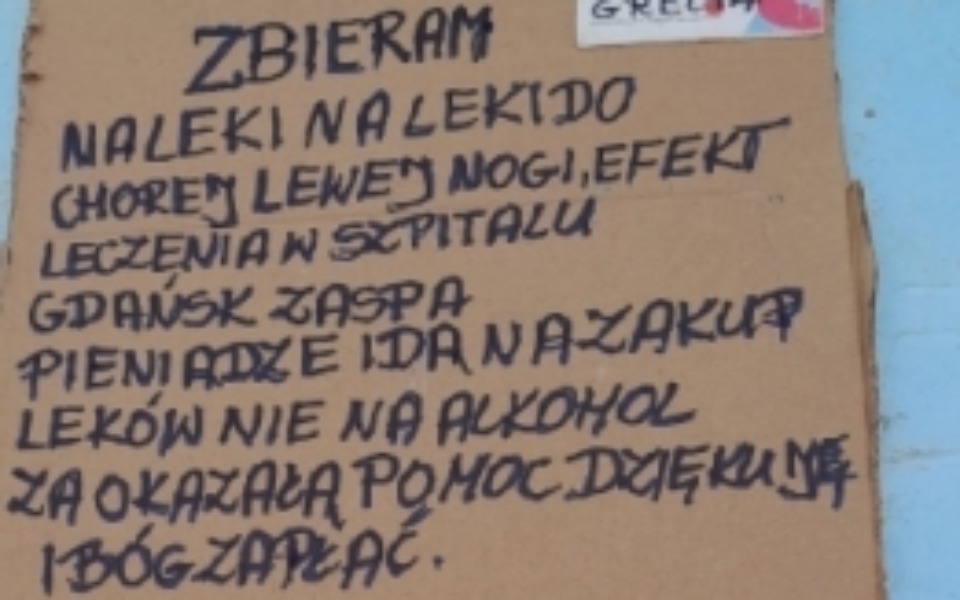 GRECJA
ZBIERAM
NA LEKI NA LEKI DO
CHOREJ LEWEJ NOGI, EFEKT
LECZENIA W SZPITALU
GDAŃSK ZASPA
PIENIĄDZE IDĄ NA ZAKUP
LEKÓW NIE NA ALKOHOL
ZA OKAZAŁĄ POMOC DZIĘKUJĘ
I BÓG ZAPŁAĆ.